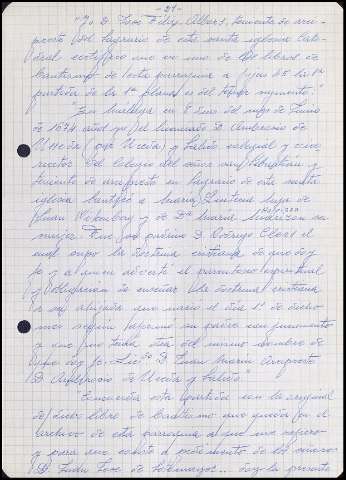 - 21 -
"Yo D. José Félix Albert, teniente de arci-
preste del Sagrario de esta santa iglesia Cate-
dral certifico que en uno de los libros de
bautismo de esta parroquia a fojas 45 la 1ª
partida de la 1ª plana es del tenor siguiente:"
"En Málaga en 8 días del mes de Junio
de 1674 años yo el licenciado D. Ambrosio de
Uceda (oye Uceda) y Salido colegial y
rector del colegio del señor san Sebastián y
teniente de arcipreste en Sagrario de esta santa
iglesia bauticé a María, hija de
Juan y de Dª María su
mujer. Fue su padrino D. Rodrigo el
cual supo la doctrina cristiana de que doy
fe y al cual advertí el parentesco espiritual
y obligación de enseñar la doctrina cristiana
a su ahijada que nació el día 1º de dicho
mes según su padre con juramento
y que no tenía otra del mismo nombre de
que doy fe. Licdo D. Juan Marín Arcipreste
D. Ambrosio de Uceda y Salido."
"Concuerda esta partida con la original
de dicho libro de bautismo que queda en el
archivo de esta parroquia al que me refiero
y para que conste a pedimento de los señores
D. Juan José de doy la presente